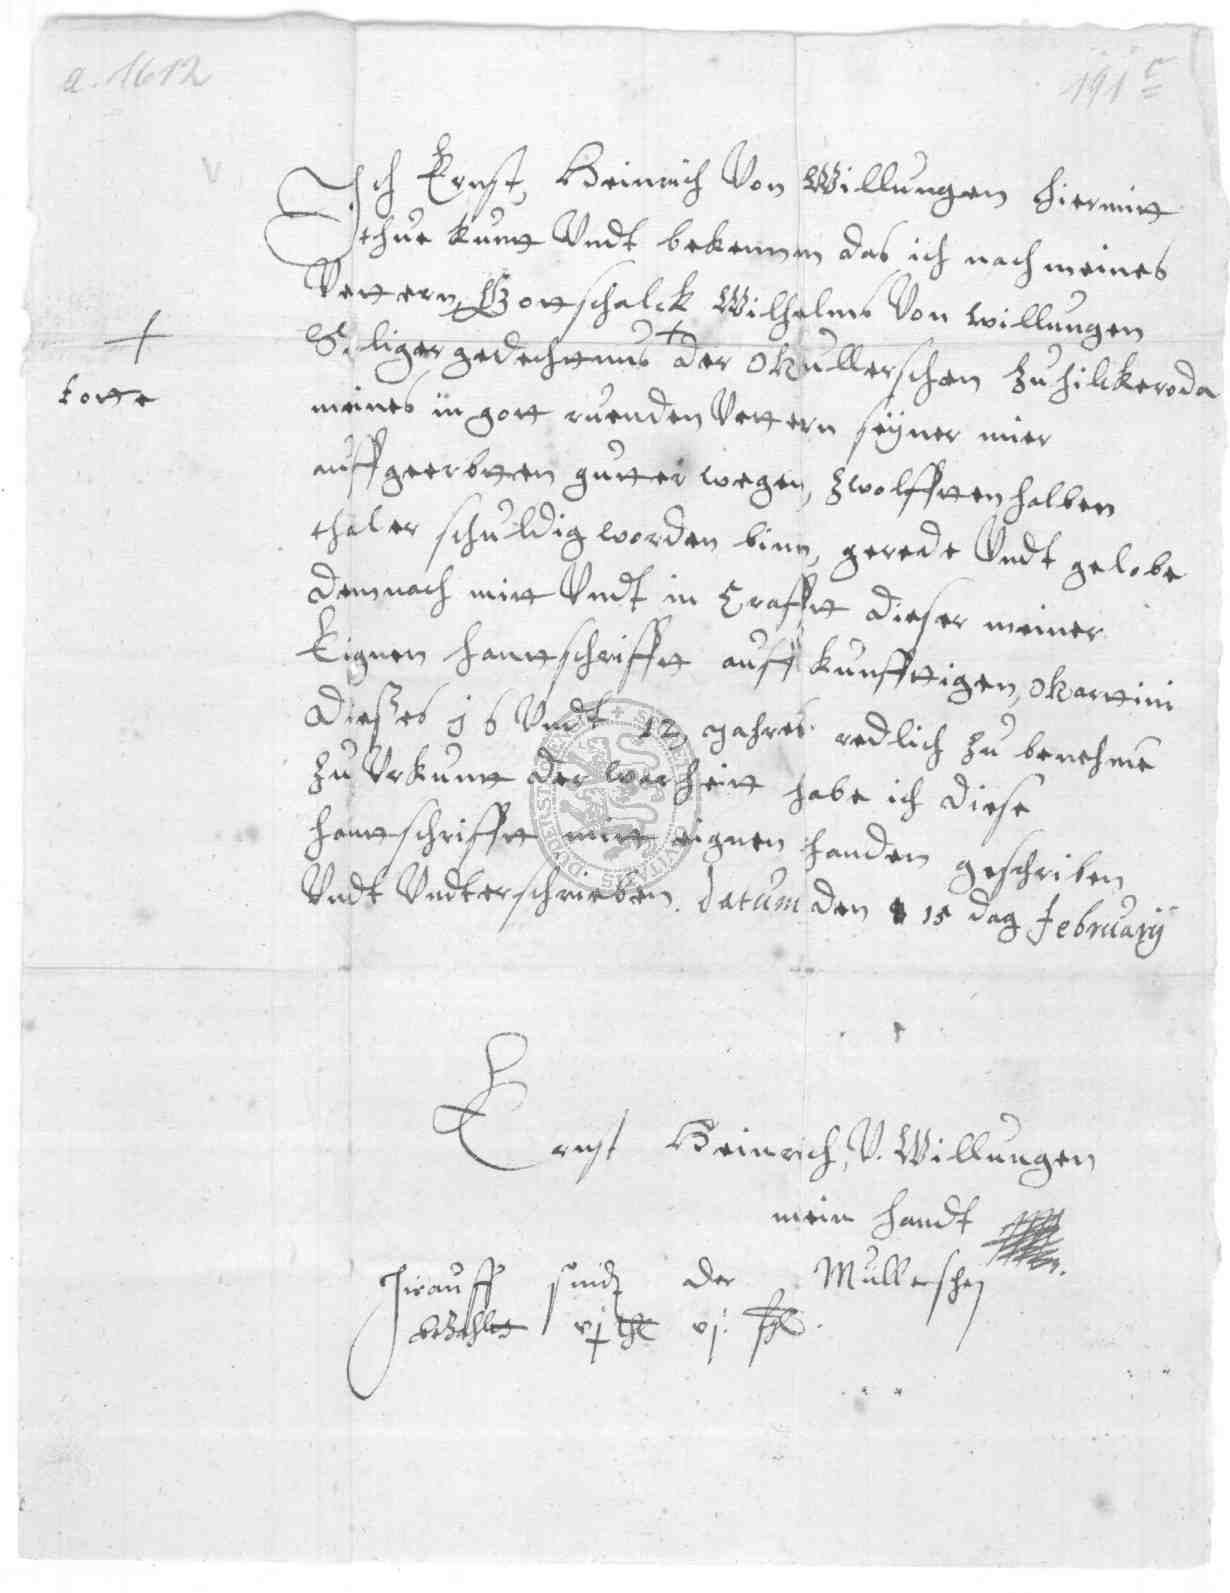 a. 1612
191 c
Ich Ernst, Heinrich Von Willungen hiermitt
thue kuntt Undt bekennen das ich nach meines
Vettern, Gottschalck Wilhelms Von willungen
Seliger gedechttnus + der Mullerschen zu hilckeroda
+
totte
meines in gott ruenden Vettern seyner mier
auffgeerbtten gutter wegen, zwolfften halben
thaler schuldig worden binn, gerede Undt gelobe
demnach mitt Undt in Crafftt dieser meiner
Eignen hanttschrifftt auff kunfftigen, Martini
dießes 16 Undt 12, jahres redlich zu
zu Urkuntt der warheitt habe ich diese
hanttschrifftt mitt eignen handen geschriben
Undt Undterschrieben. datum den 15 dag february
Ernst Heinrich, V. Willungen
mein handt
hirauff sindt der Mullerschen
bezahlet vj thl vj. ßgl.